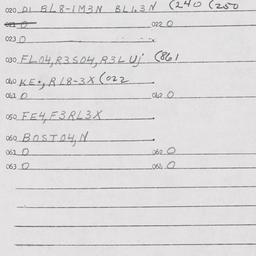 020 DI BL8-1M3N BL1.3N (240 (250
021 0 022 0
023 0
030 FL04,R3S04,R3LUj (861
040 KE*,R18-3X (022
041 0 042 0
050 FE4,F3RL3X
060 BOST04,N
061 0 062 0
063 0 064 0